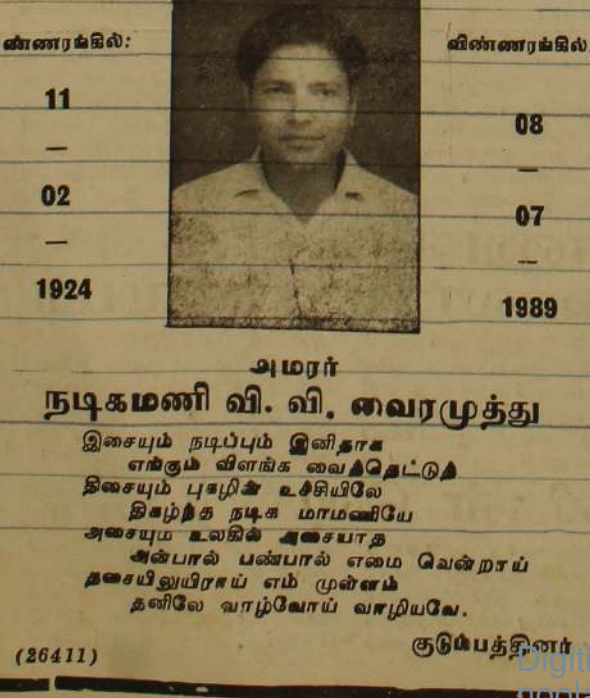 ண்ணரங்கில்:
11
—
02
—
1924
விண்ணரங்கில்
08
—
07
—
1989
அமரர்
நடிகமணி வி. வி. வைரமுத்து
இசையும் நடிப்பும் இனிதாக
எங்கும் விளங்க வைத்தெட்டுத்
திசையும் புகழின் உச்சியிலே
திகழ்ந்த நடிக மாமணியே
அசையும் உலகில் அசையாத
அன்பால் பண்பால் எமை வென்றாய்
தசையிலுயிராய் எம் முள்ளம்
தனிலே வாழ்வோய் வாழியவே.
குடும்பத்தினர்
(26411)